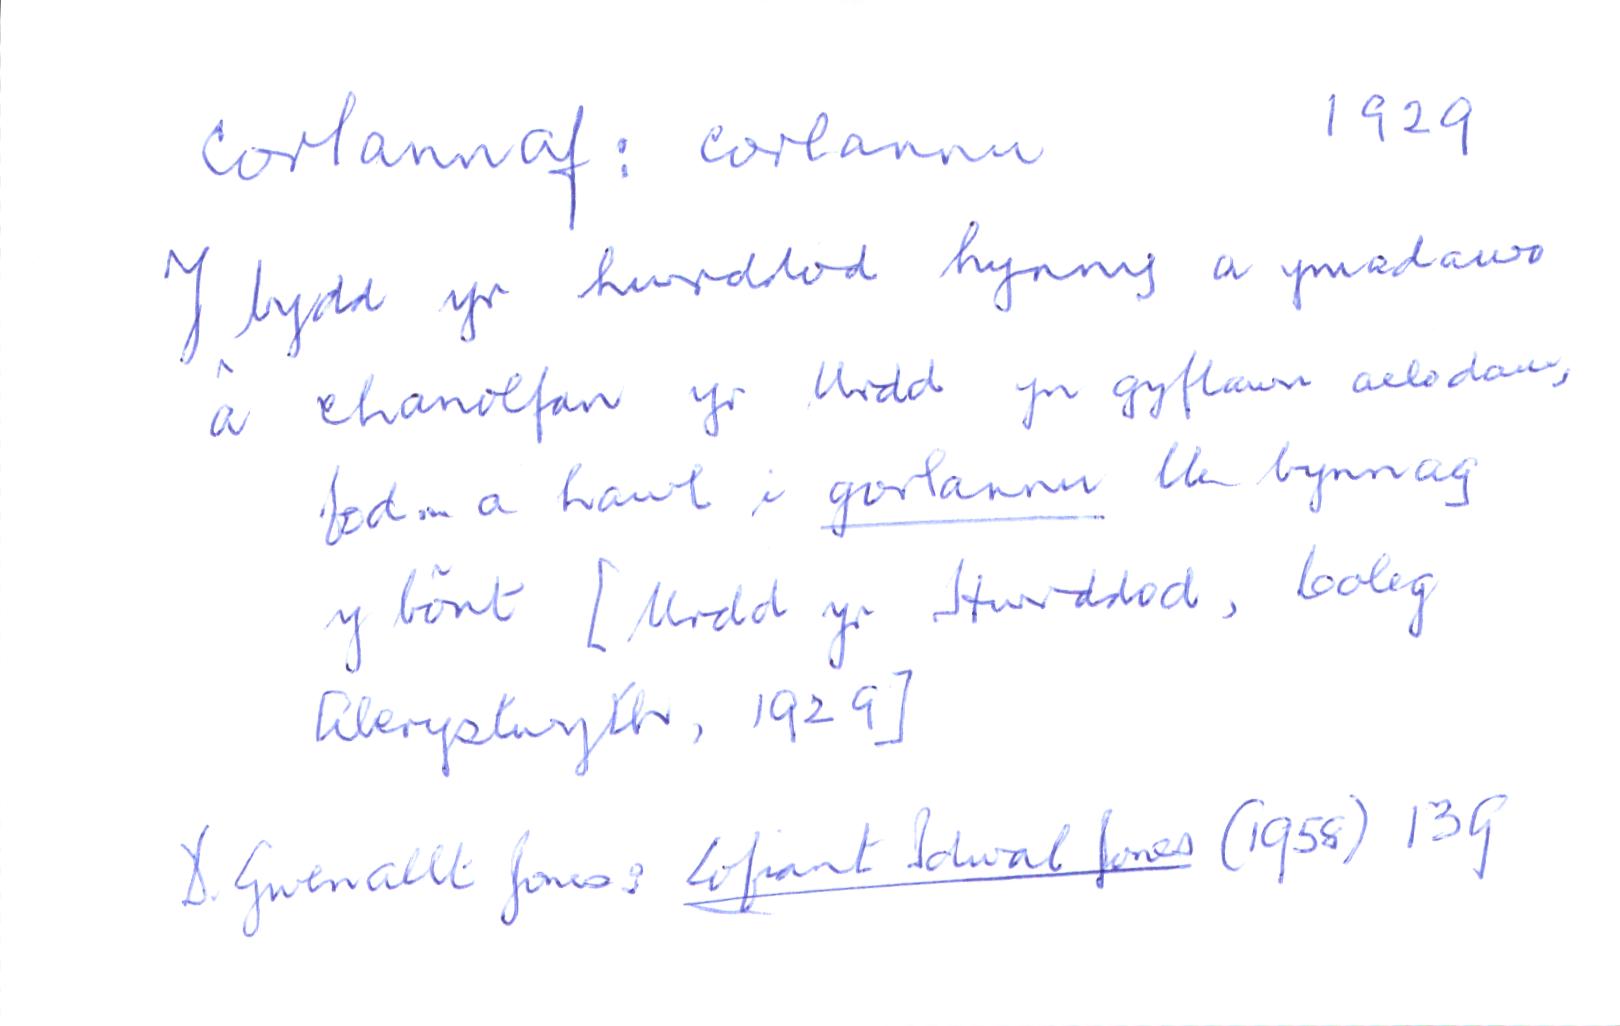 corlannaf: corlannu 1929
Y bydd yr hwrddod hynny a ymadawo
â chanolfan yr Urdd yn gyflawn aelodau,
a hawl i gorlannu lle bynnag
y bônt [Urdd yr Hwrddod, Coleg
Aberystwyth, 1929]
D. Gwenallt Jones: Cofiant Idwal Jones (1958) 139